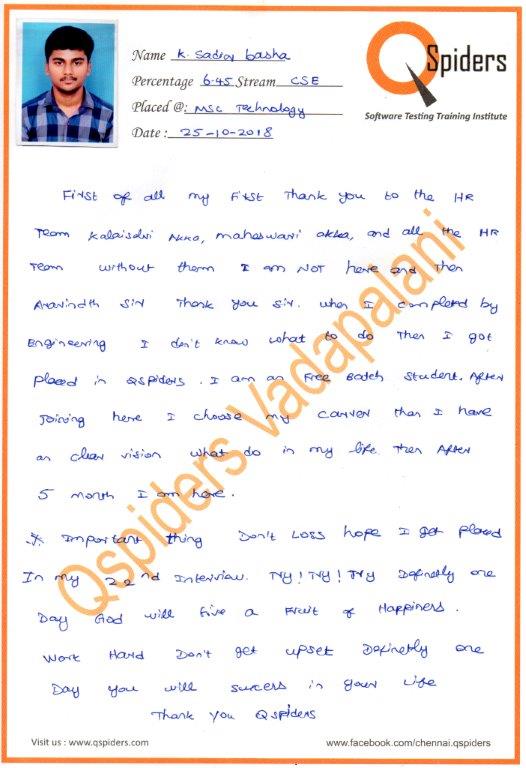 Name K. Sadiq basha
QSpiders
Percentage 6.45 Stream CSE
Placed @: MSC Technology
Software Testing Training Institute
Date : 25-10-2018
First of all my First Thank you to the HR
Team Kalaiselvi Akka, maheswari akka, and all the HR
Team without them I am NOT here and Then
Aravindth Sir Thank you Sir. when I completed by
Engineering I don't know what to do Then I got
placed in QSPIDERS. I am an Free Batch Student. After
Joining here I choose my carrer than I have
an clear vision what do in my life. Then After
5 month I am here.
* Important thing Don't Loss hope I get placed
In my 22nd Interview. Try! Try! Try Definetly one
Day God will Give a Fruit of Happiness.
Work Hard Don't get upset Definetly one
Day you will success in your Life
Thank You QSpiders
Qspiders Vadapalani
Visit us : www.qspiders.com
www.facebook.com/chennai.qspiders